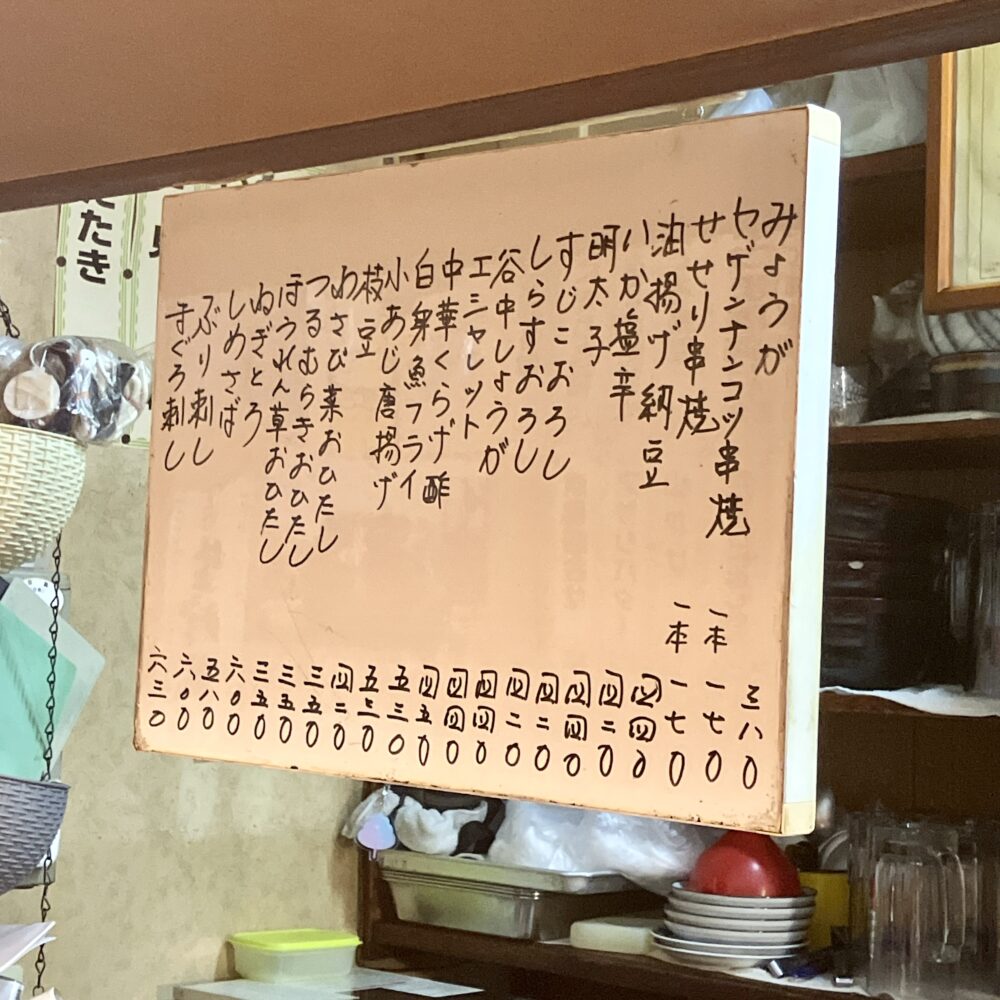 みょうが 三八0
ヤゲンナンコツ串焼 一本 一七0
せせり串焼 一本 一七0
油揚げ納豆 四四0
いか塩辛 四二0
明太子 四四0
すじこおろし 四二0
しらすおろし 四二0
谷中しょうが 四四0
エシャレット 四四0
中華くらげ酢 四五0
白身魚フライ 五三0
小あじ唐揚げ 五三0
枝豆 四二0
わさび菜おひたし 三五0
つるむらきおひたし 三五0
ほうれん草おひたし 三五0
ねぎとろ 六00
しめさば 五八0
ぶり刺し 六00
まぐろ刺し 六三0
たたき